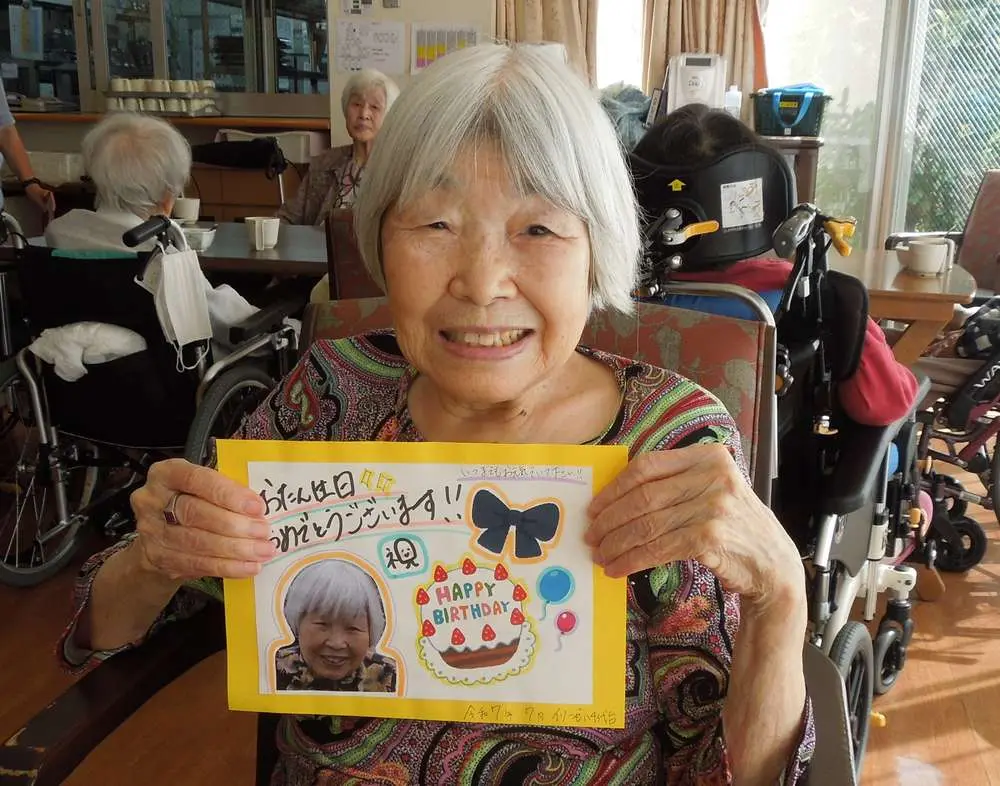 おたん生日
おめでとうございます!!
いつまでもお元気でいて下さい!!
祝
HAPPY
BIRTHDAY
令和7年 7月